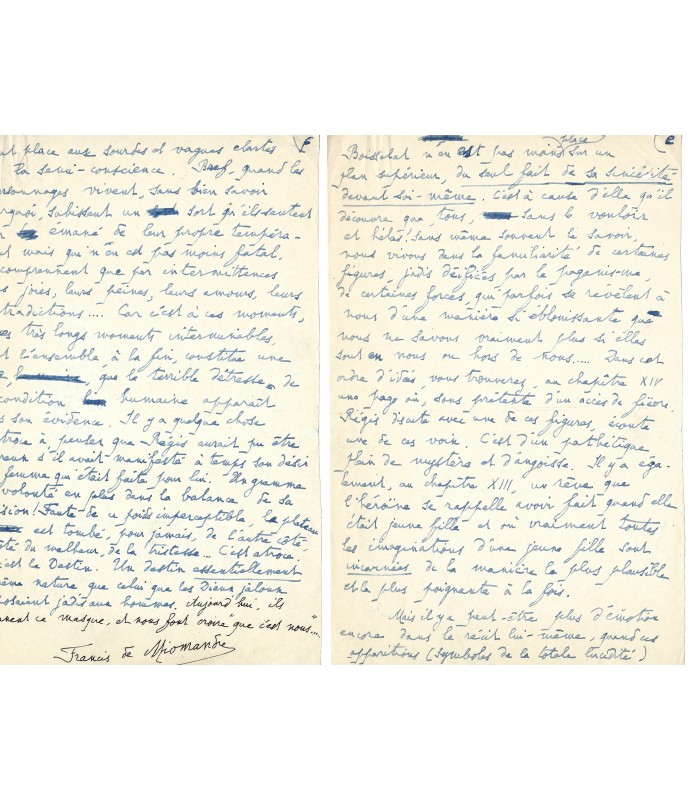 nt place aux sourdes et vagues clartés
la semi-conscience. Bref, quand les
rsonnages vivent, sans bien savoir
rquoi, subissant un sort qu'ils sentent
n émané de leur propre tempéra-
t mais qui n'en est pas moins fatal,
comprennent que par intermittences
s joies, leurs peines, leurs amours, leurs
tradictions.... Car c'est à ces moments,
es très longs moments interminables,
t l'ensemble à la fin, constitue une
e, que la terrible détresse de
condition humaine apparaît
s son évidence. Il y a quelque chose
troce à penser que Régis aurait pu être
reux s'il avait manifesté à temps son désir
femme qui était faite pour lui. Un gramme
volonté en plus dans la balance de sa
ision! Faute de ce poids imperceptible, le plateau
est tombé, pour jamais, de l'autre côté,
té du malheur, de la tristesse... C'est atroce
c'est le Destin. Un destin essentiellement
ême nature que celui que les Dieux jaloux
osaient jadis aux hommes. Aujourd'hui, ils
nnent ce masque, et nous font croire "que c'est nous"...
Francis de Miomandre
e
place
Boisselat n'en est pas moins sur un
plan supérieur, du seul fait de sa sincérité
devant soi-même. C'est à cause d'elle qu'il
découvre que, tous, sans le vouloir
et hélas! sans même souvent le savoir,
nous vivons dans la familiarité de certaines
figures, jadis déifiées par le paganisme,
de certaines forces, qui parfois se révèlent à
nous d'une manière si éblouissante que
nous ne savons vraiment plus si elles
sont en nous ou hors de nous.... Dans cet
ordre d'idées, vous trouverez, au chapitre XIV
une page où, sous prétexte d'un accès de fièvre,
Régis discute avec une de ces figures, écoute
une de ces voix. C'est d'un pathétique
plein de mystère et d'angoisse. Il y a éga-
lement, au chapitre XIII, un rêve que
l'héroïne se rappelle avoir fait quand elle
était jeune fille et où vraiment toutes
les imaginations d'une jeune fille sont
incarnées de la manière la plus plausible
et la plus poignante à la fois.
Mais il y a peut-être plus d'émotion
encore dans le récit lui-même, quand ces
apparitions (symboles de la totale lucidité)